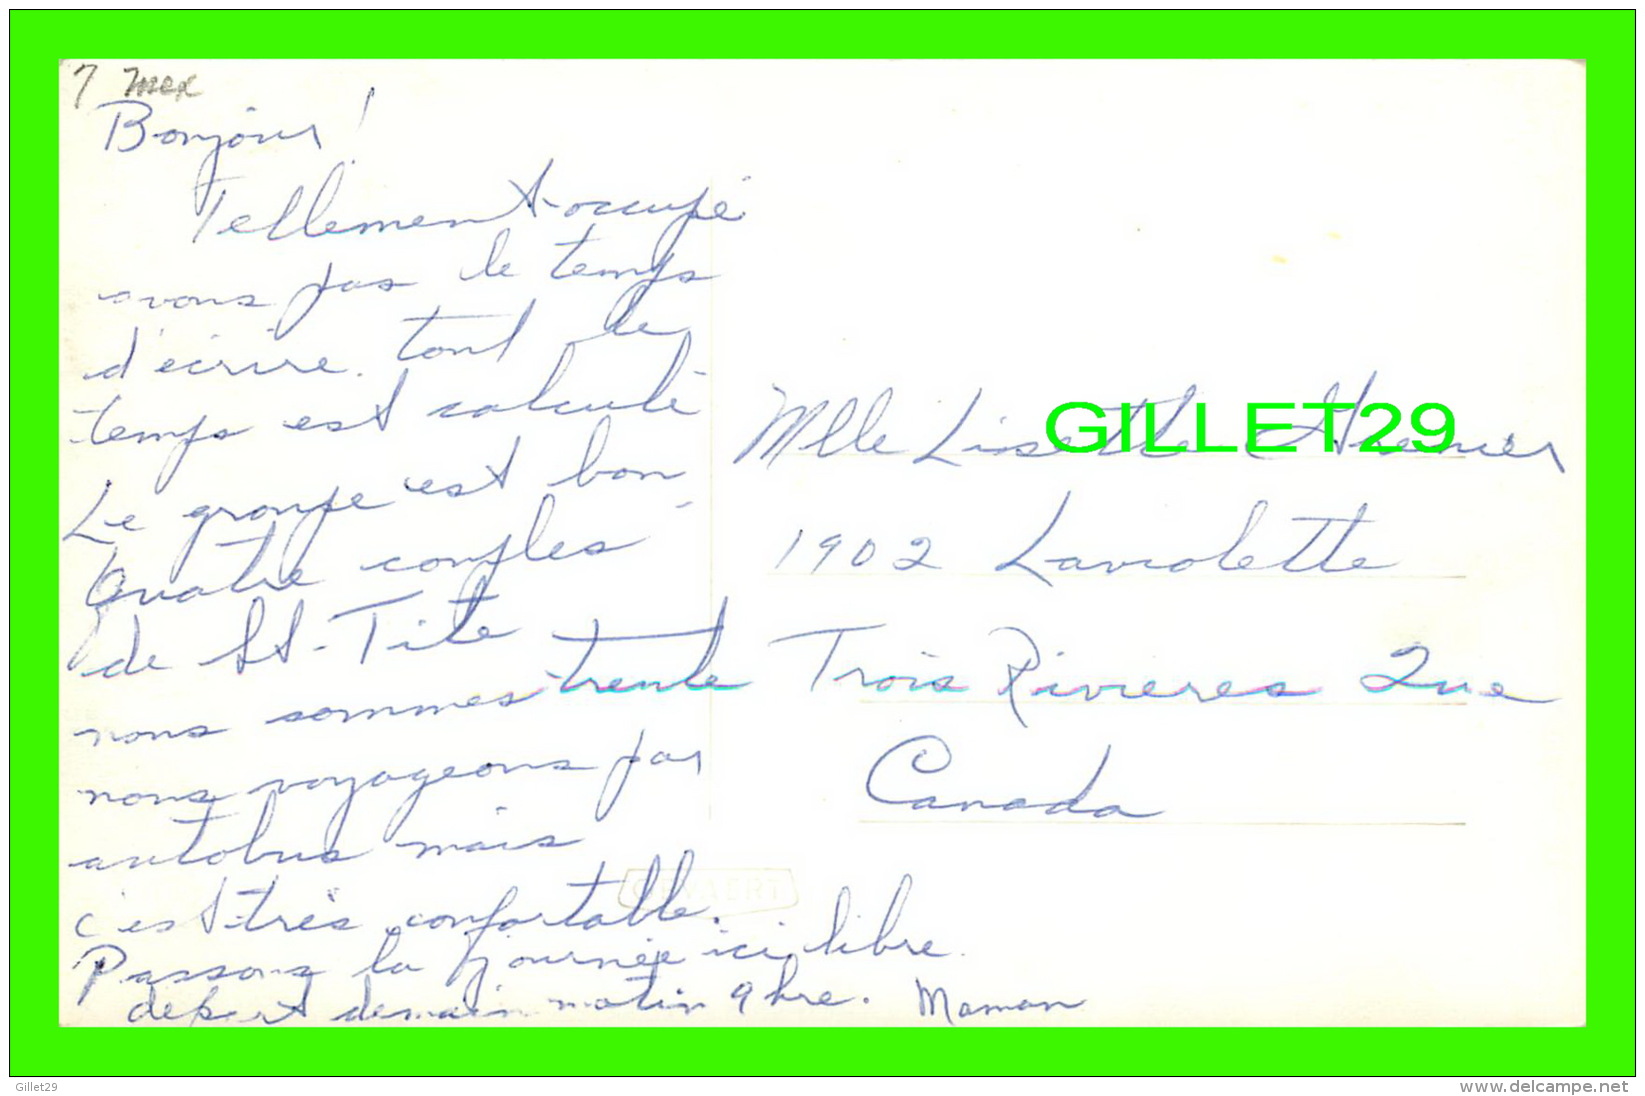 7 Mex
Bonjour!
Tellement occupé
avons pas le temps
d'écrire. tout le
temps est calculé
Le groupe est bon
Quatre couples
de St-Tite
nous sommes trente
nous voyageons par
autobus mais
c'est très confortable.
Passons la journée ici libre.
départ demain matin 9 hre. Maman
Mlle Lisette
1902 Laviolette
Trois Rivieres Que
Canada
GEVAERT
GILLET29
Gillet29
www.delcampe.net